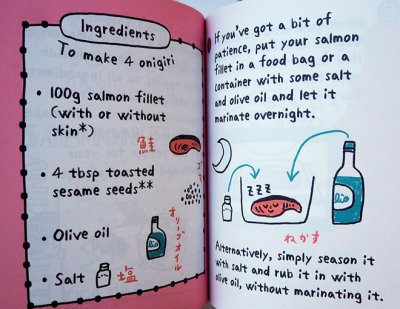 Ingredients
To make 4 onigiri
• 100g salmon fillet
(with or without
skin*)
鮭
• 4 tbsp toasted
sesame seeds**
ゴマ
• Olive oil
オリーブオイル
• Salt
塩
If you've got a bit of
patience, put your salmon
fillet in a food bag or a
container with some salt
and olive oil and let it
marinate overnight.
zzz
ねかす
Alternatively, simply season it
with salt and rub it in with
olive oil, without marinating it.